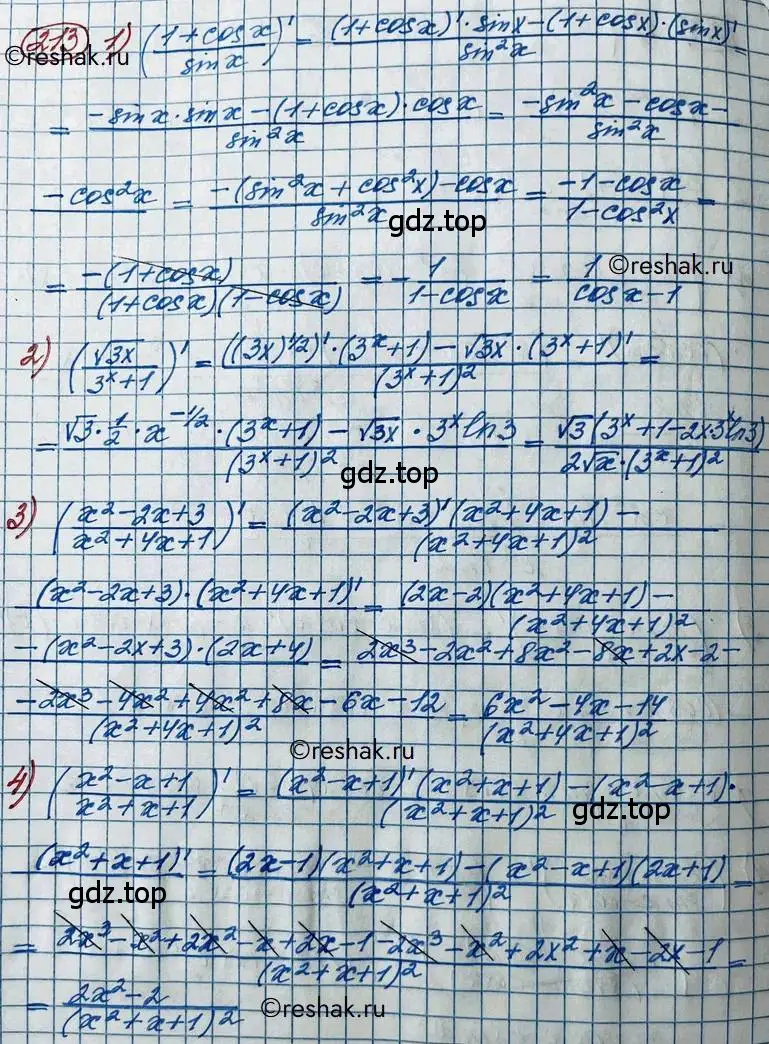 213 1) ((1+cosx)/(sinx))' = ((1+cosx)'·sinx-(1+cosx)·(sinx)')/(sin²x) =
©reshak.ru
= (-sinx·sinx-(1+cosx)·cosx)/(sin²x) = (-sin²x-cosx-
-cos²x)/(sin²x) = (-(sin²x+cos²x)-cosx)/(sin²x) = (-1-cosx)/(1-cos²x) =
gdz.top
= (-(1+cosx))/((1+cosx)(1-cosx)) = -1/(1-cosx) = 1/(cosx-1)
©reshak.ru
2) (√3x/(3ˣ+1))' = (((3x)^1/2)'·(3ˣ+1)-√3x·(3ˣ+1)')/(3ˣ+1)² =
= (√3·1/2·x^-1/2·(3ˣ+1)-√3x·3ˣln3)/(3ˣ+1)² = √3(3ˣ+1-2x·3ˣln3)/(2√x·(3ˣ+1)²)
gdz.top
3) ((x²-2x+3)/(x²+4x+1))' = ((x²-2x+3)'(x²+4x+1)-
(x²-2x+3)·(x²+4x+1)')/(x²+4x+1)² = ((2x-2)(x²+4x+1)-
-(x²-2x+3)·(2x+4))/(x²+4x+1)² = (2x³-2x²+8x²-8x+2x-2-
-2x³-4x²+4x²+8x-6x-12)/(x²+4x+1)² = (6x²-4x-14)/(x²+4x+1)²
©reshak.ru
4) ((x²-x+1)/(x²+x+1))' = ((x²-x+1)'(x²+x+1)-(x²-x+1)·
gdz.top
(x²+x+1)')/(x²+x+1)² = ((2x-1)(x²+x+1)-(x²-x+1)(2x+1))/(x²+x+1)² =
gdz.top
= (2x³-x²+2x²-x+2x-1-2x³-x²+2x²+x-2x-1)/(x²+x+1)² =
= (2x²-2)/(x²+x+1)²
©reshak.ru